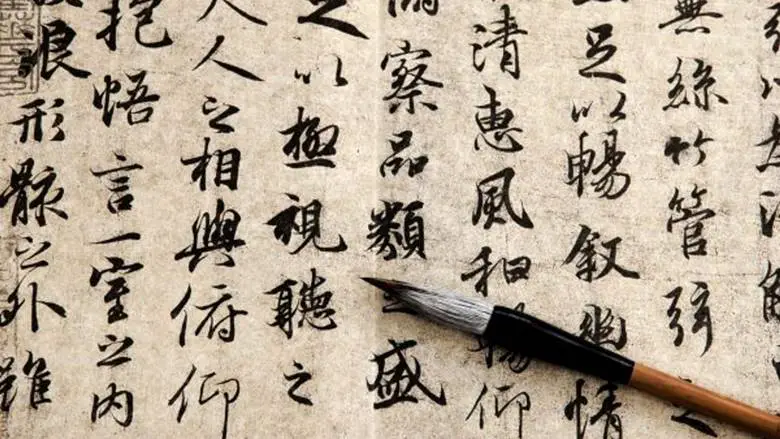 以為流
無絲竹管弦之
足以暢敘幽情
清惠風和暢仰
俯察品類之盛
足以極視聽之
夫人之相與俯仰
抱悟言一室之內
浪形骸之外雖